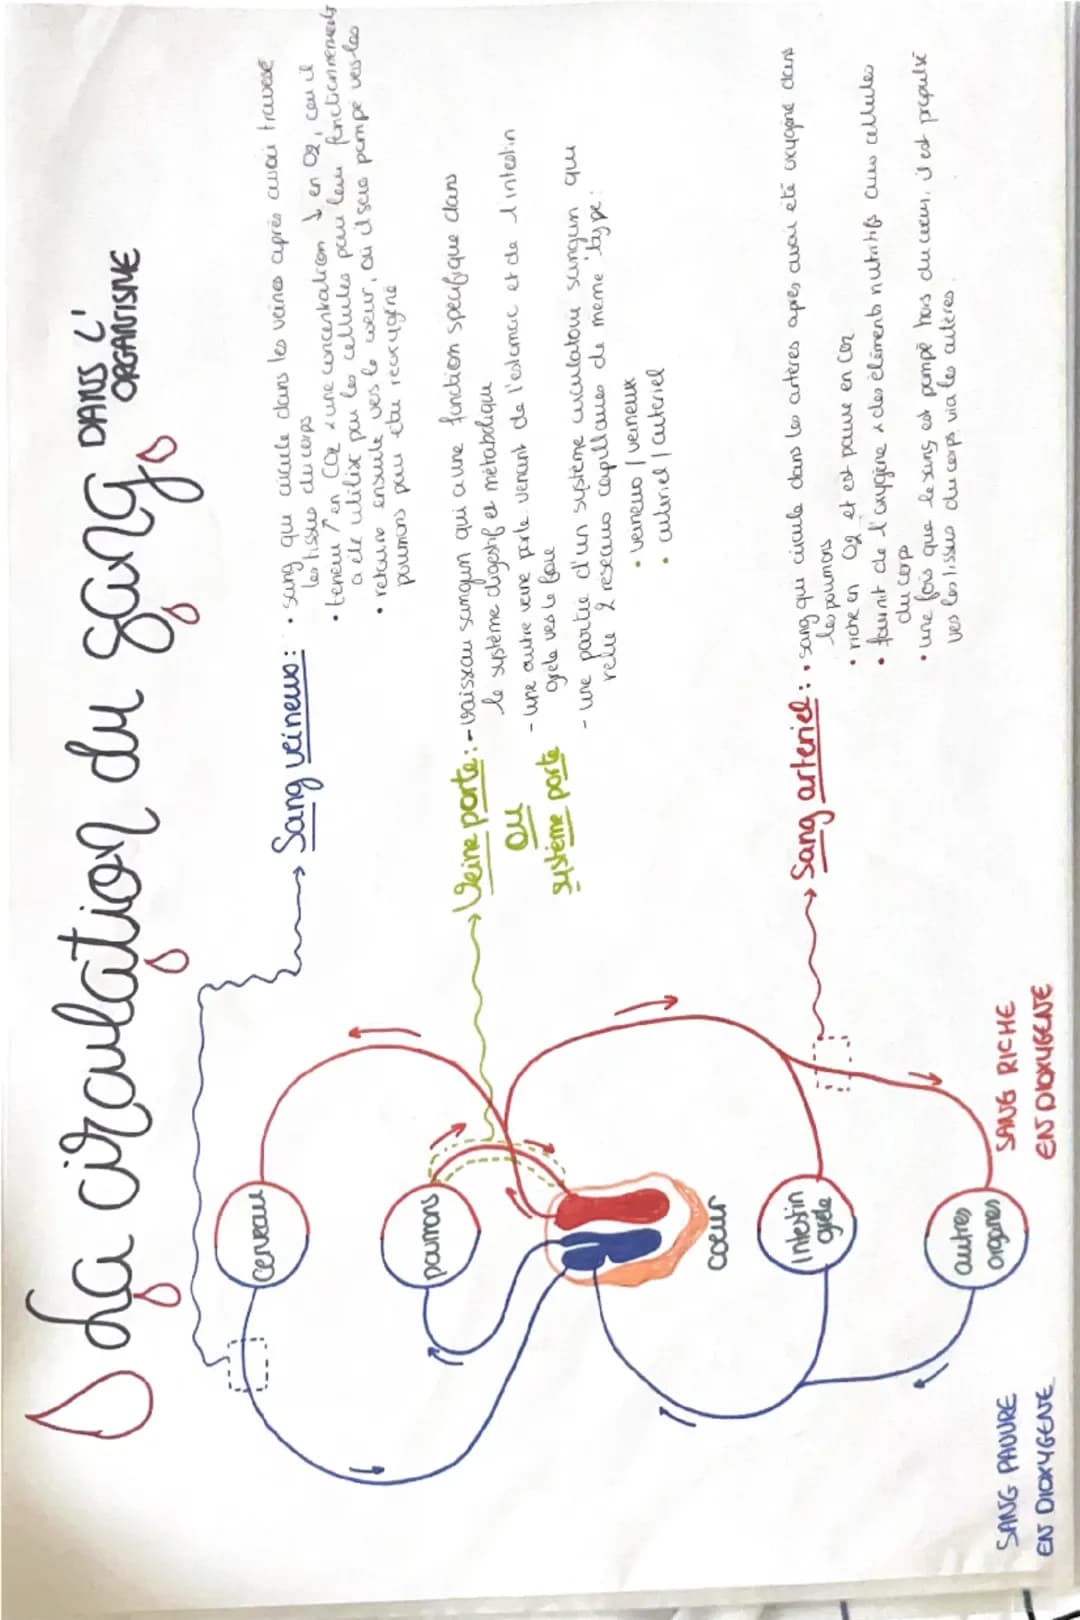 La circulation du sang DANS L'
ORGANISME
Sang veineux : • sang qui circule dans les veines après avoir traversé
les tissus du corps
• teneur ↑ en CO2 & une concentration ↓ en O2, car il
a été utilisé par les cellules pour leur fonctionnement
• retourne ensuite vers le coeur, où il sera pompé vers les
poumons pour être reoxygéné
Veine porte : - vaisseau sanguin qui a une function spécifique dans
le système digestif et métabolique
ou
système porte
- une autre veine porte venant de l'estomac et de l'intestin
grele vers le foie
- une partie d'un système circulatoire sanguin qui
relie 2 reseaux capillaires de meme type :
• veineux / veineux
• arteriel / arteriel
Sang arteriel : • sang qui circule dans les artères apres avoir eté oxygéné dans
les poumons
• riche en O2 et est pauvre en CO2
• fournit de l'oxygène & des éléments nutritifs aux cellules
du corps
• une fois que le sang est pompé hors du coeur, il est propulsé
vers les tissus du corps via les artères.
cerveau
poumons
coeur
Intestin
grele
autres
organes
SANG PAUVRE
EN DIOXYGENE
SANG RICHE
EN DIOXYGENE